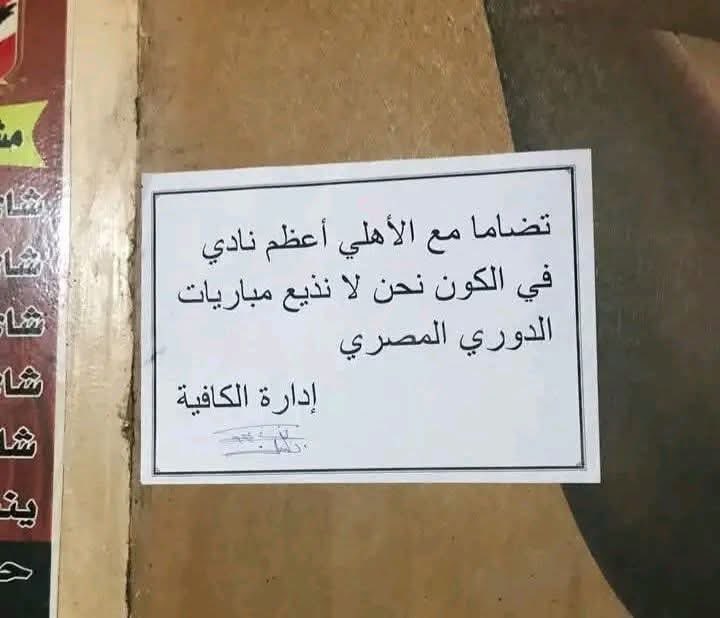 تضاما مع الأهلي أعظم نادي
في الكون نحن لا نذيع مباريات
الدوري المصري
إدارة الكافية